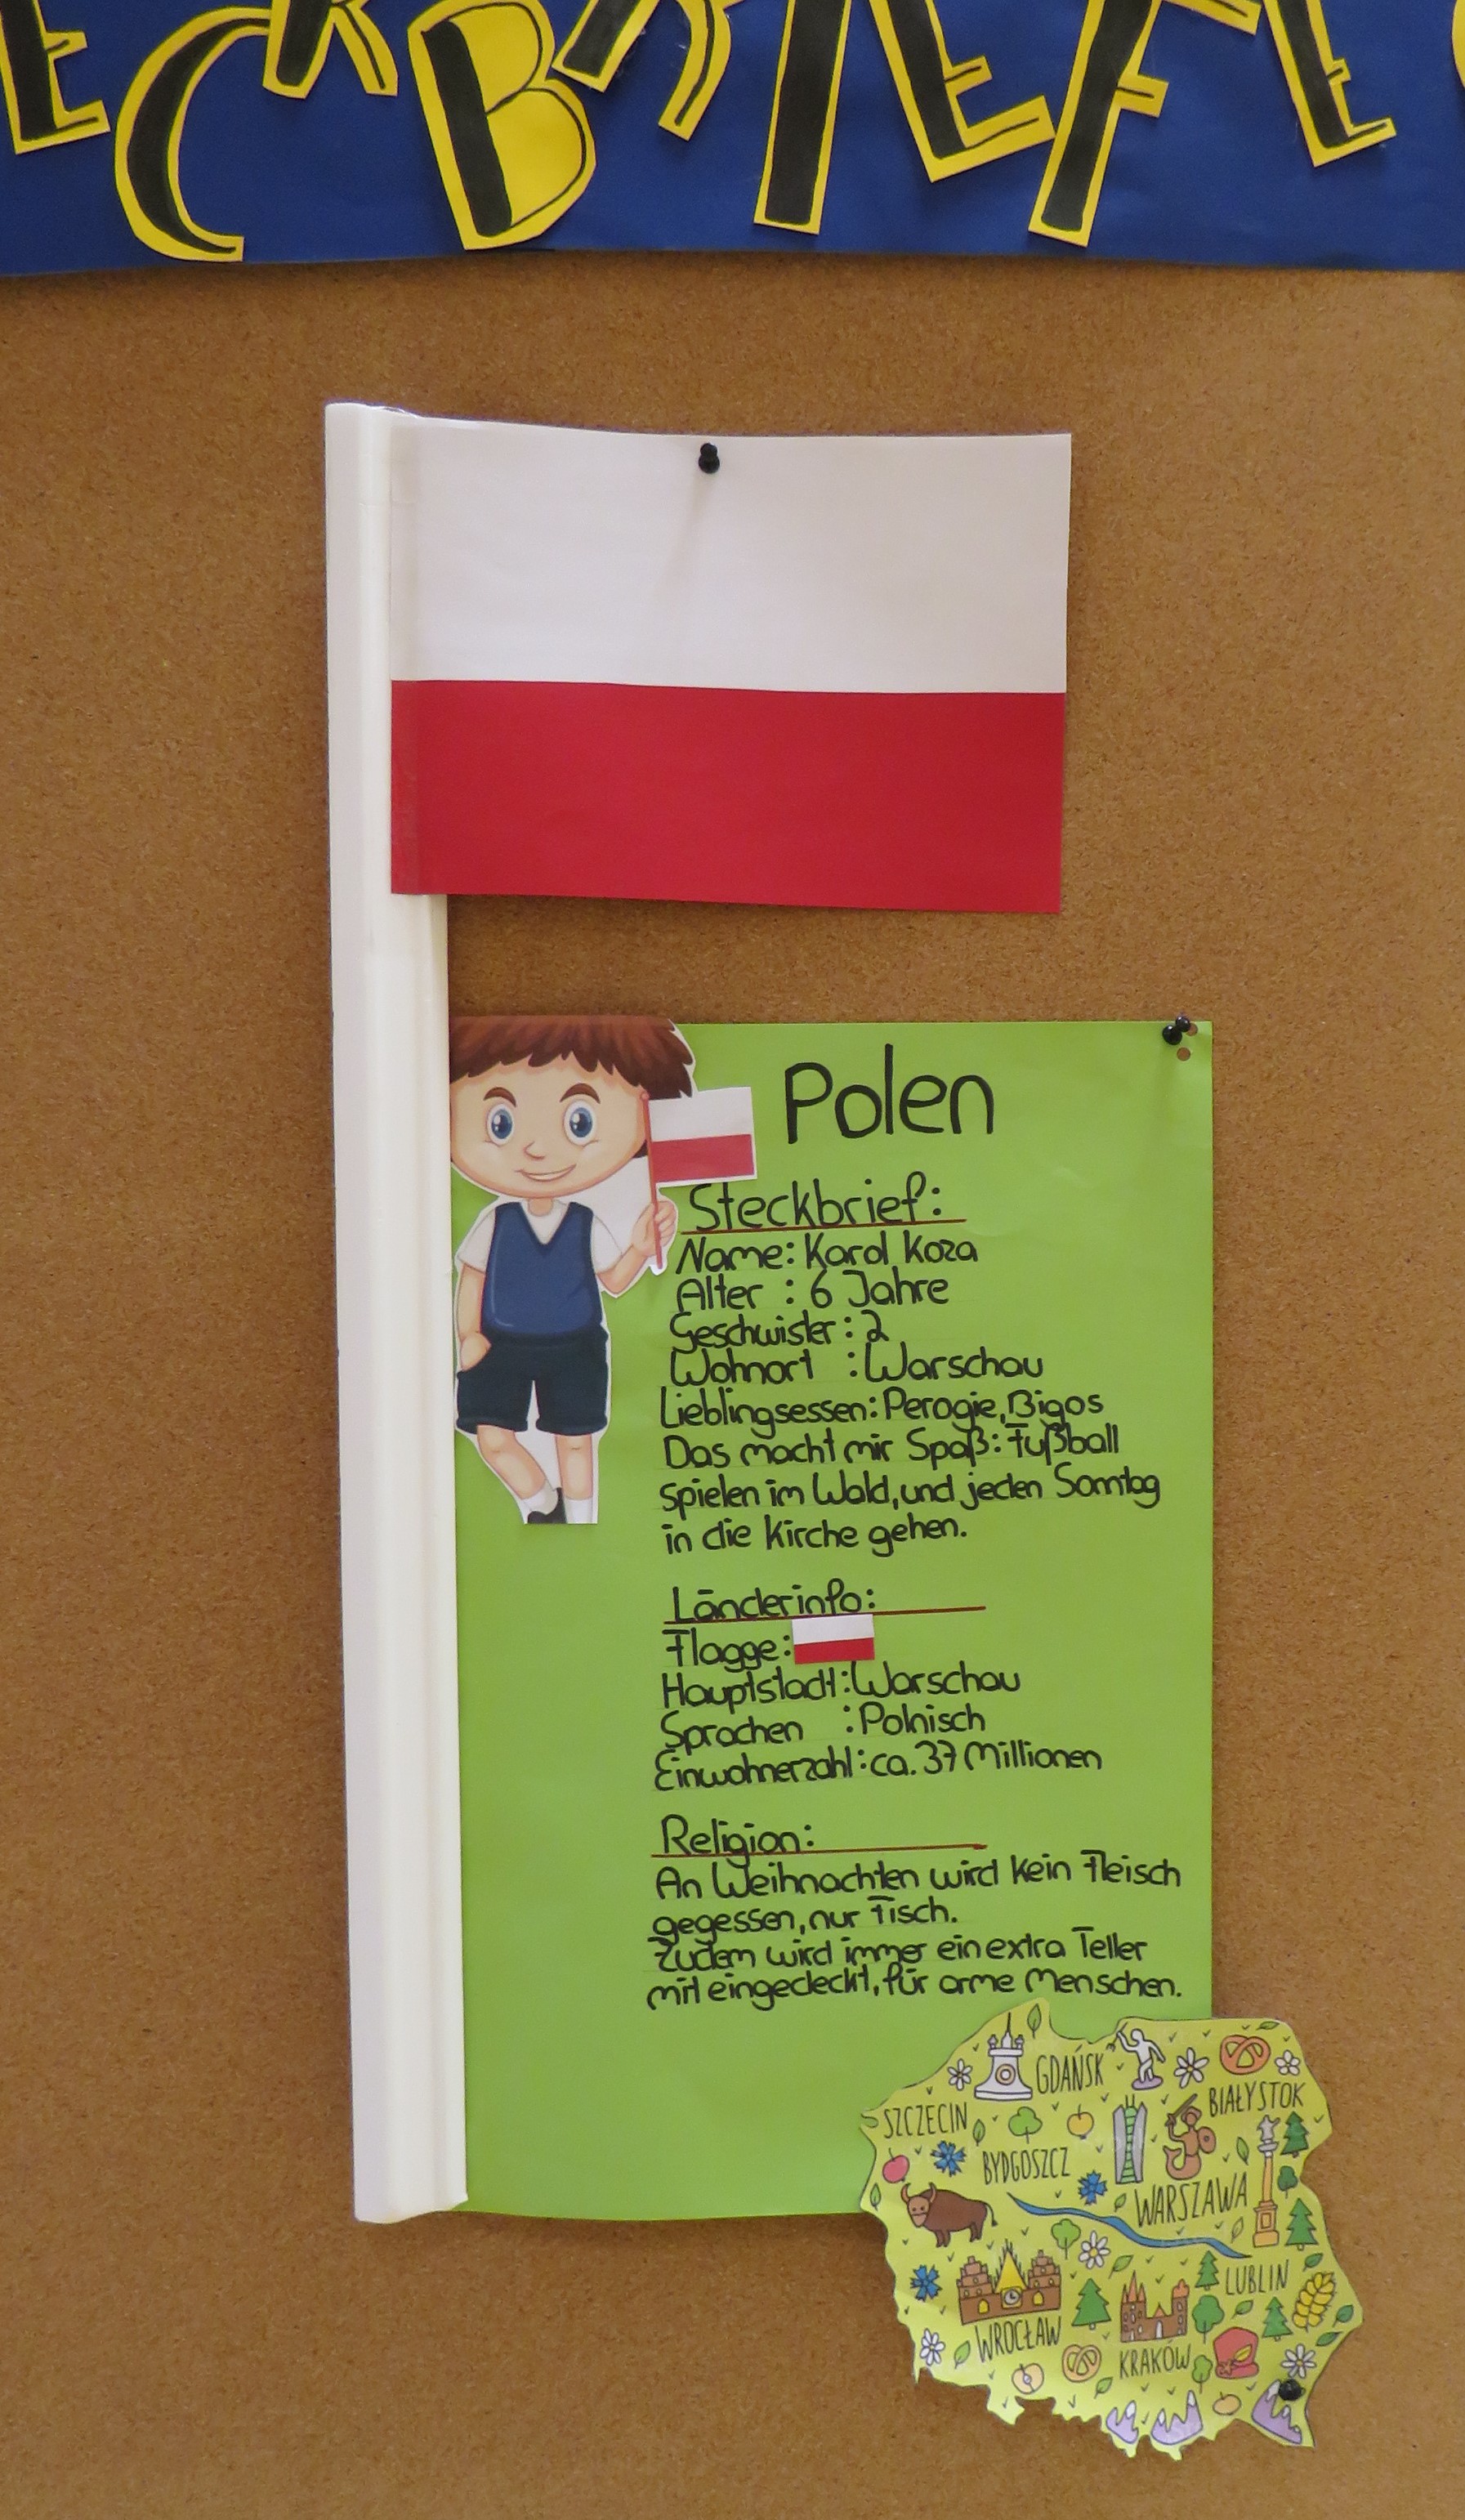 ECKBRIEFE
Polen
Steckbrief:
Name: Karol Koza
Alter : 6 Jahre
Geschwister: 2
Wohnort : Warschau
Lieblingsessen: Perogie, Bigos
Das macht mir Spaß: Fußball
spielen im Wald, und jeden Sonntag
in die Kirche gehen.
Länderinfo:
Flagge:
Hauptstadt: Warschau
Sprachen : Polnisch
Einwohnerzahl: ca. 37 Millionen
Religion:
An Weihnachten wird kein Fleisch
gegessen, nur Fisch.
Zudem wird immer ein extra Teller
mit eingedeckt, für arme Menschen.
GDAŃSK
BIAŁYSTOK
SZCZECIN
BYDGOSZCZ
WARSZAWA
LUBLIN
WROCŁAW
KRAKÓW